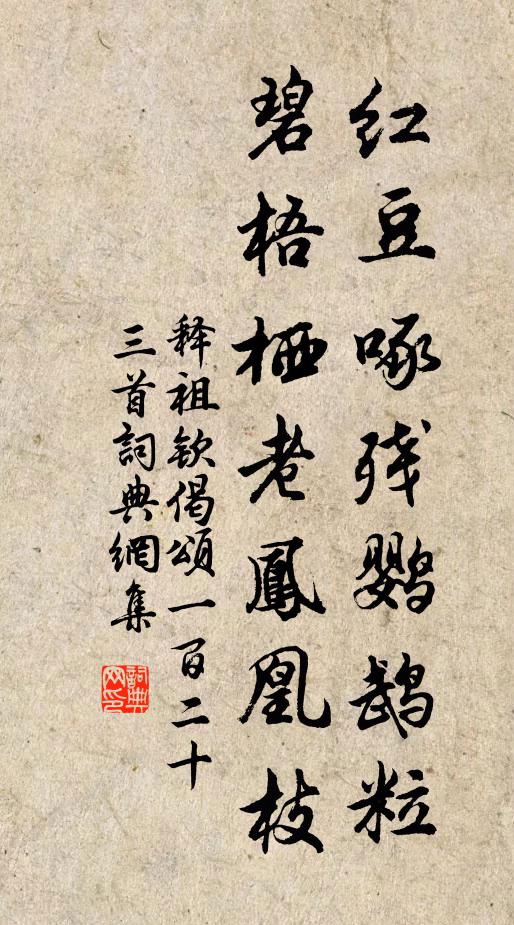 红豆啄残鹦鹉粒
碧梧栖老鳳凰枝
释祖钦偈頌一百二十
三首詞典網集
詞典
网印